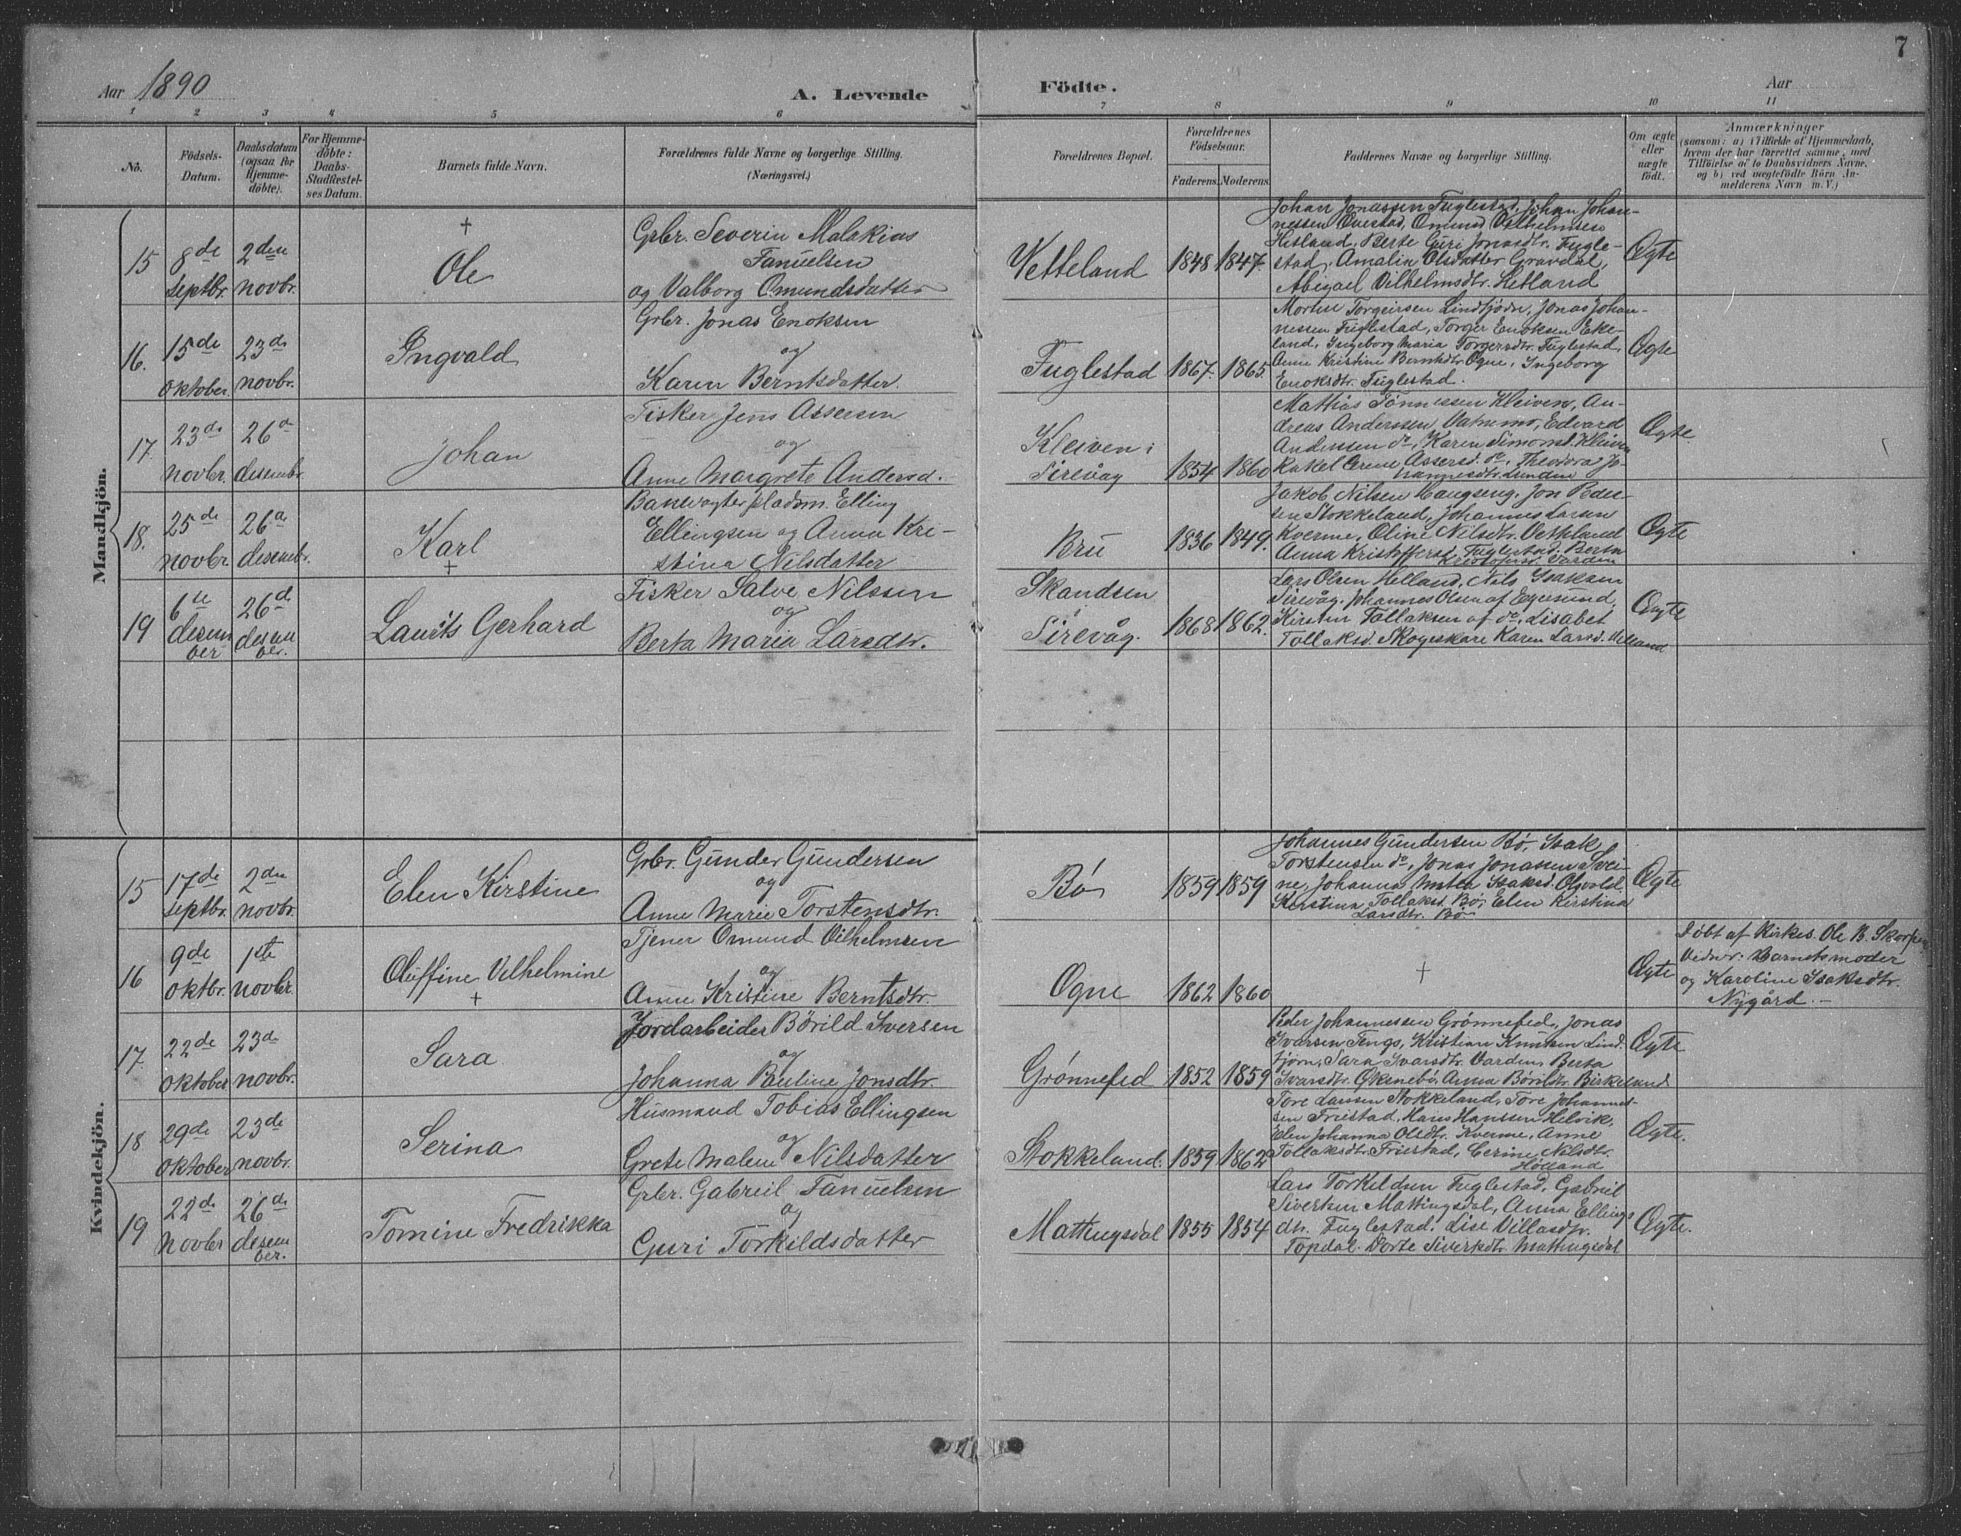 7
Aar 1890
A. Levende Födte.
Aar
1 2 3 4 5 6 7 8 9 10 11
No.
Födsels-Datum.
Daabsdatum (ogsaa for Hjemmedöbte).
For Hjemmedöbte: Daabs-Stadfæstelses Datum.
Barnets fulde Navn.
Forældrenes fulde Navne og borgerlige Stilling. (Næringsvei.)
Forældrenes Bopæl.
Forældrenes Födselsaar.
Faderens. Moderens.
Faddernes Navne og borgerlige Stilling.
Om ægte eller uægte födt.
Anmærkninger
(saasom: a) i Tilfælde af Hjemmedaab,
hvem der har forrettet samme, med
Tilföielse af to Daabsvidners Navne,
og b) ved uægtefödte Börn Anmelderens Navn m. V.)
Mandkjön.
15 8de septbr. 2den novbr.
† Ole
Grbr. Severin Malakias
Fanuelsen
og Valborg Omundsdatter
Vetteland 1848 1847
Johan Jonassen Fuglestad, Johan Johan-
nessen Ouestad, Omund Vilhelmsen
Hetland, Berte Guri Jonasdtr. Fugle-
stad, Amalia Olsdatter Gravdal,
Abigael Vilhelmsdtr. Hetland
Ægte
16. 15de oktober. 23de novbr.
Ingvald
Grbr. Jonas Enoksen
og
Karen Berntsdatter.
Fuglestad 1867. 1865.
Morten Torgeirsen Lindtjørn, Jonas Johan-
nessen Fuglestad, Torger Enoksen Eke-
land, Ingeborg Maria Torgersdtr. Fuglestad,
Anne Kristine Berntsdtr. Ogne, Ingeborg
Enoksdtr. Fuglestad.
Ægte
17. 23de novbr. 26de desembr.
Johan
Fisker Jens Assersen
og
Anne Margrete Andersd.
Kleiven i
Sirevåg 1854 1860
Mathias Tønnessen Kleiven, An-
dreas Anderssen Vatnemo, Edvard
Anderssen do, Karen Simonsd. Kleiven
Rakel Serene Assersd. do, Theodora Jo-
hannesdtr. Lunden
Ægte
18. 25de novbr. 26de desembr.
Karl †
Banevogter pladsm. Elling
Ellingsen og Anna Kri-
stina Nilsdatter
Bru 1836 1849.
Jakob Nilsen Haugseng, Jon
sen Stokkeland, Johannes Larsen
Kverme, Oline Nilsdtr. Vetteland
Anna Kristoffersd. Fuglestad, Berta
Kristofersd. Varden
Ægte
19 6te desember 26de desember.
Laurits Gerhard
Fisker Salve Nilssen
og
Berta Maria Larsdtr.
Skandsen
Sirevåg. 1868 1862.
Lars Olsen Helland, Nils Isaksen
Sirevåg, Johannes Olsen af Egersund,
Kirstin Tollaksen af do, Lisabet
Tollaksd. Skogeskare Karen Larsd. Helland
Ægte
Kvindekjön.
15 17de septbr. 2den novbr.
Elen Kirstine
Grbr. Gunder Gundersen
og
Anne Marie Torstensdtr.
Bø 1859 1859
Johannes Gundersen Bø, Isak
Torstensen do, Jonas Jonassen Svei-
ne, Johanna Isaksd.
Kirstina Tollaksd. Bø, Elen Kirstina
Larsdtr. Bø
Ægte
16 9de oktbr. 1ste novbr.
Oluffine Vilhelmine †
Tjener Omund Vilhelmsen
og
Anne Kristine Berntsdtr.
Ogne 1862 1860
†
Ægte
Døbt af Kirkes. Ole B.
Vidner: Barnets moder
og Karoline Isaksdtr.
Nygård.
17. 22de oktober 23de novbr.
Sara
Jordarbeider Børild Iversen
og
Johanna Pauline Jonsdtr.
Grønnefed 1852 1859
Peder Johannessen Grønnefed, Jonas
Ivarsen Tengs, Kristian Knutsen Lind-
tjørn, Sara Ivarsdtr. Varden, Berta
Ivarsdtr. Eknebø, Anna Børildtr. Birkeland
Ægte
18 29de oktober 23de novbr.
Serina
Husmand Tobias Ellingsen
og
Grete Malene Nilsdatter
Stokkeland. 1859 1862
Tore Larsen Stokkeland, Tore Johannes-
sen Fristad, Hans Hanssen Helvik,
Elen Johanna Olsdtr. Kverme, Anne
Tollaksdtr. Fristad, Cerine Nilsdtr.
Holland
Ægte.
19 22de novbr 26de desember.
Tomine Fredrikka
Grbr. Gabriel Fanuelsen
og
Guri Torkildsdatter
Mattingsdal 1855 1854
Lars Torkildsen Fuglestad, Gabriel
Sivertsen Mattingsdal, Anna Ellings-
dtr. Fuglestad. Lise Villasdtr.
Topdal. Dorte Siverksdtr. Mattingsdal
Ægte.